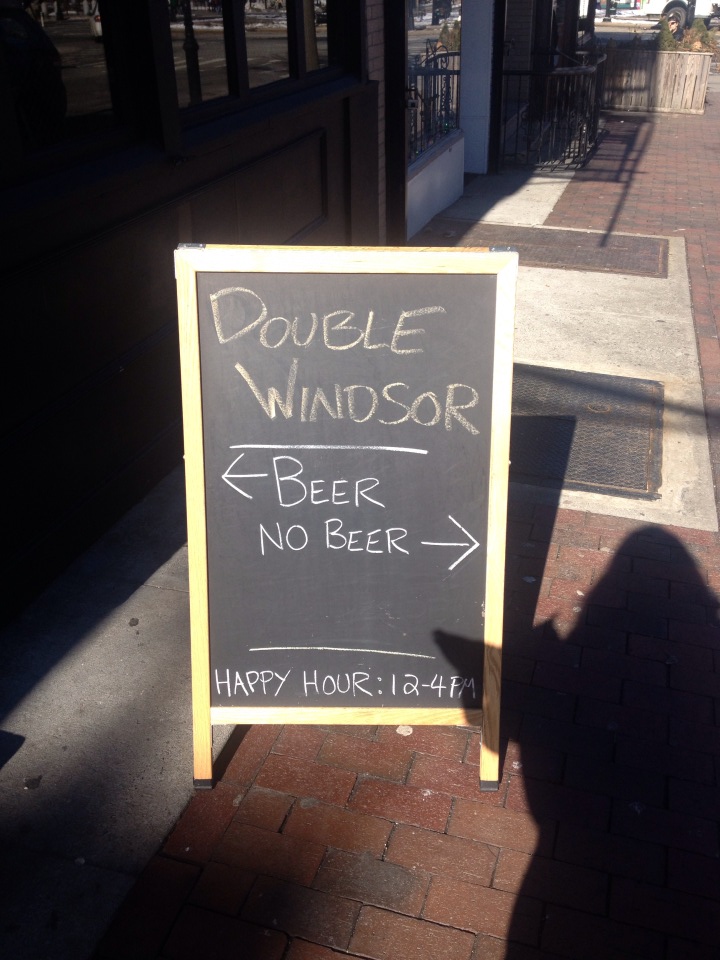 DOUBLE
WINDSOR
← BEER
NO BEER →
HAPPY HOUR: 12-4PM